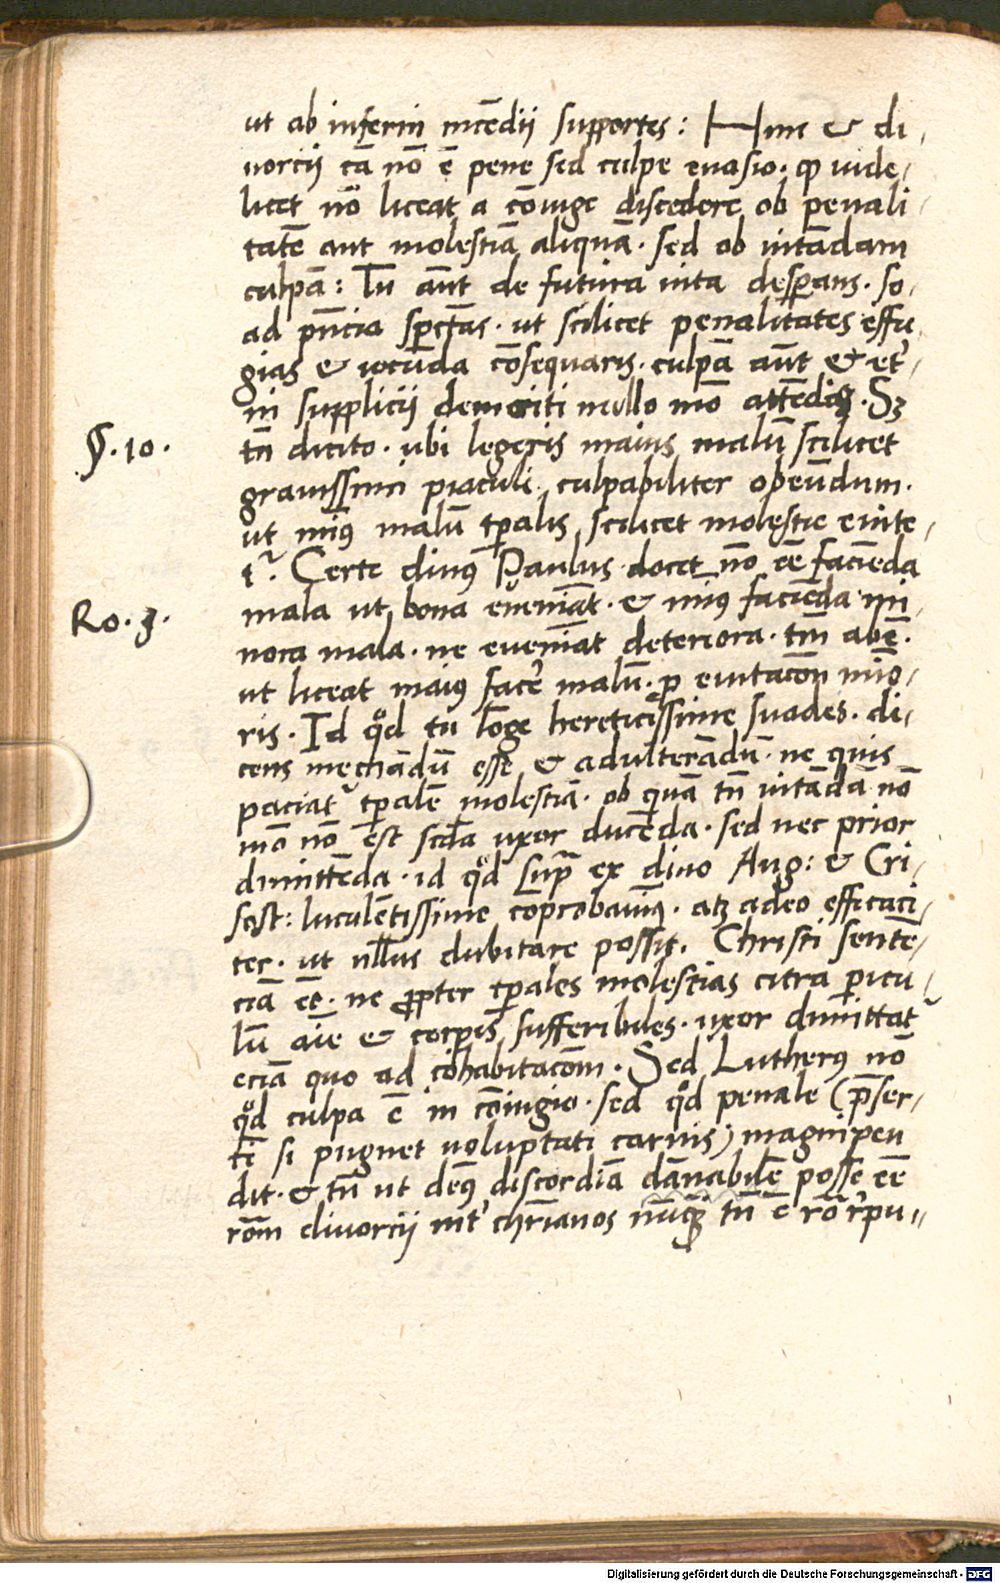 ut ab inferni incēdii supportes: Hinc & di,
uortii cā nō ē pene sed culpe euasio. qp uide,
licet nō liceat a cōiuge discedere ob penali,
tatē aut molestiā aliquā. sed ob uitādam
culpā: Tu aūt de futura uita desperans. so,
ad pn̄cia spectās. ut scilicet penalitates effu,
gias & iocūda cōsequaris. culpā aūt & et'
ni supplicii demeriti nullo mō attēdis. Sꝫ
§. 10.
tn̄ dicito. ubi legeris maius malū scilicet
grauissimi piaculi culpabiliter obeūdum.
ut minꝰ malū tp̄alis scilicet molestie euite,
tᷣ. Certe diuꝰ Paulus docet nō eē faciēda
Ro. 3.
mala ut bona eueniāt. & minꝰ faciēda mi,
nora mala. ne eueniāt deteriora. tm̄ abē.
ut liceat maiꝰ facē malū. p euitacōn miō,
ris. Id qd̊ tu lōge hereticissime suades. di,
cens męchādū esse & adulterādū. ne quis
paciatᷣ tp̄alē molestiā. ob quā tn̄ uitādā nō
mō nō est scd̄a uxor ducēda. sed nec prior
dimittēda. id qd̊ supᵃ ex diuo Aug: & Cri,
sost: luculētissime cōprobauimꝰ. atꝫ adeo efficaci,
ter. ut nll̄us dubitare possit. Christi sentē,
ciā eē. ne ꝓpter tp̄ales molestias citra picu,
lū aīe & corpis sufferibiles. uxor dimittatᷣ
eciā quo ad cōhabitacōm. Sed Lutherꝰ nō
qd̊ culpa ē in cōiugio. sed qd̊ penale (p̄ser,
tī si pugnet uoluptati carnis) magnipen
dit. & tn̄ ut deꝰ discordiā dānabilē posse eē
rōm diuorcii int' chr̄ianos nūqᷓ tn̄ ē rō r'pu,,
Digitalisierung gefördert durch die Deutsche Forschungsgemeinschaft - DFG